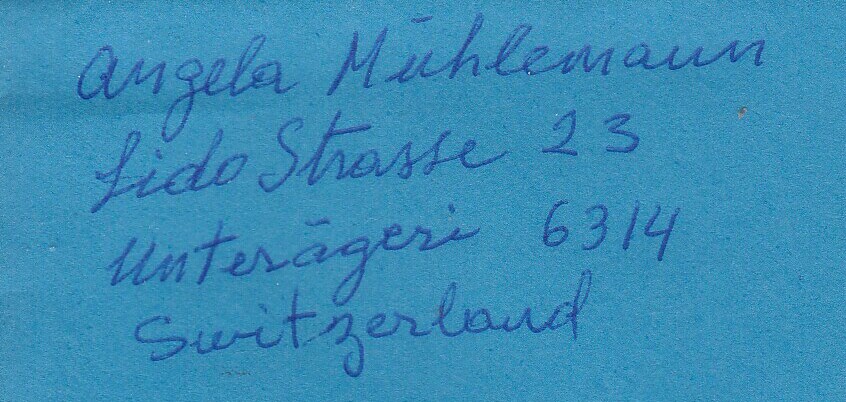 Angela Mühlemann
Lido Strasse 23
Unterägeri 6314
Switzerland